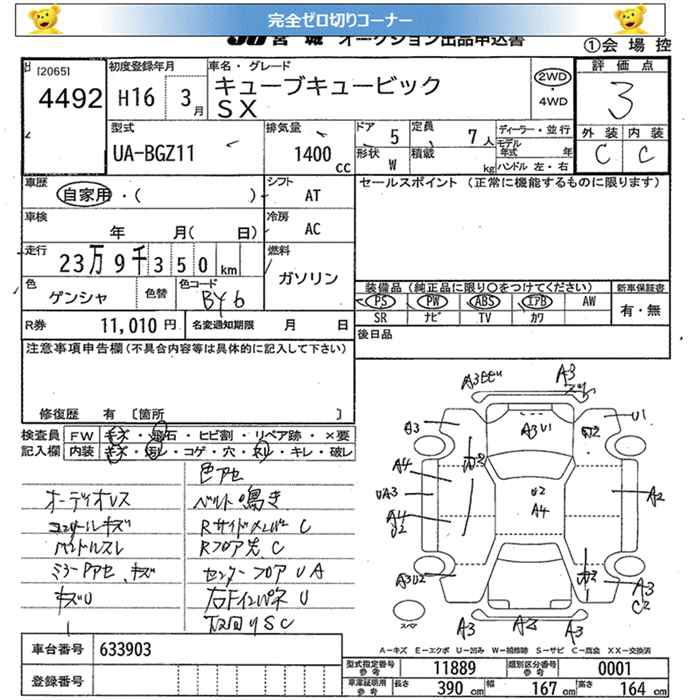 完全ゼロ切りコーナー
JU宮城 オークション出品申込書 ①会場控
[2065] 初度登録年月 車名・グレード 評価点
4492 H16 3月 キューブキュービック 2WD・4WD 3
SX
外装 内装
型式 排気量 ドア 5 定員 7人 ディーラー・並行 C C
UA-BGZ11 1400cc 形状 W 積載 kg モデル年式 年
ハンドル 左・右
車歴 自家用・( ) シフト AT セールスポイント (正常に機能するものに限ります)
車検 年 月( 日) 冷房 AC
走行 23万9千350km 燃料 ガソリン
色 ゲンシャ 色替 色コード BY6
装備品 (純正品に限り○をつけてください) 新車保証書
PS PW ABS エアB AW 有・無
SR ナビ TV カワ
R券 11,010円 名変通知期限 月 日 後日品
注意事項申告欄(不具合内容等は具体的に記入して下さい)
修復歴 有 〔箇所 〕
検査員 FW キズ・飛石・ヒビ割・リペア跡・×要
記入欄 内装 キズ・汚レ・コゲ・穴・スレ・キレ・破レ
色アセ
オーディオレス ベルト鳴き
コンソールキズ RサイドメンバーC
ハンドルスレ Rフロア先C
ミラーアセ、キズ センターフロアUA
キズU 右ドインパネU
下回りSC
A3 A3
A3 A3 U1 U1
A4 U2 A2
UA3 A4
A4
U2
A3U2 A3
C2
スペア A3 A3 A3
A-キズ E-エクボ U-凹み W-補修跡 S-サビ C-腐食 XX-交換済
車台番号 633903 型式指定番号 参考 11889 類別区分番号 参考 0001
登録番号 車庫証明用 参考 長さ 390cm 幅 167cm 高さ 164cm